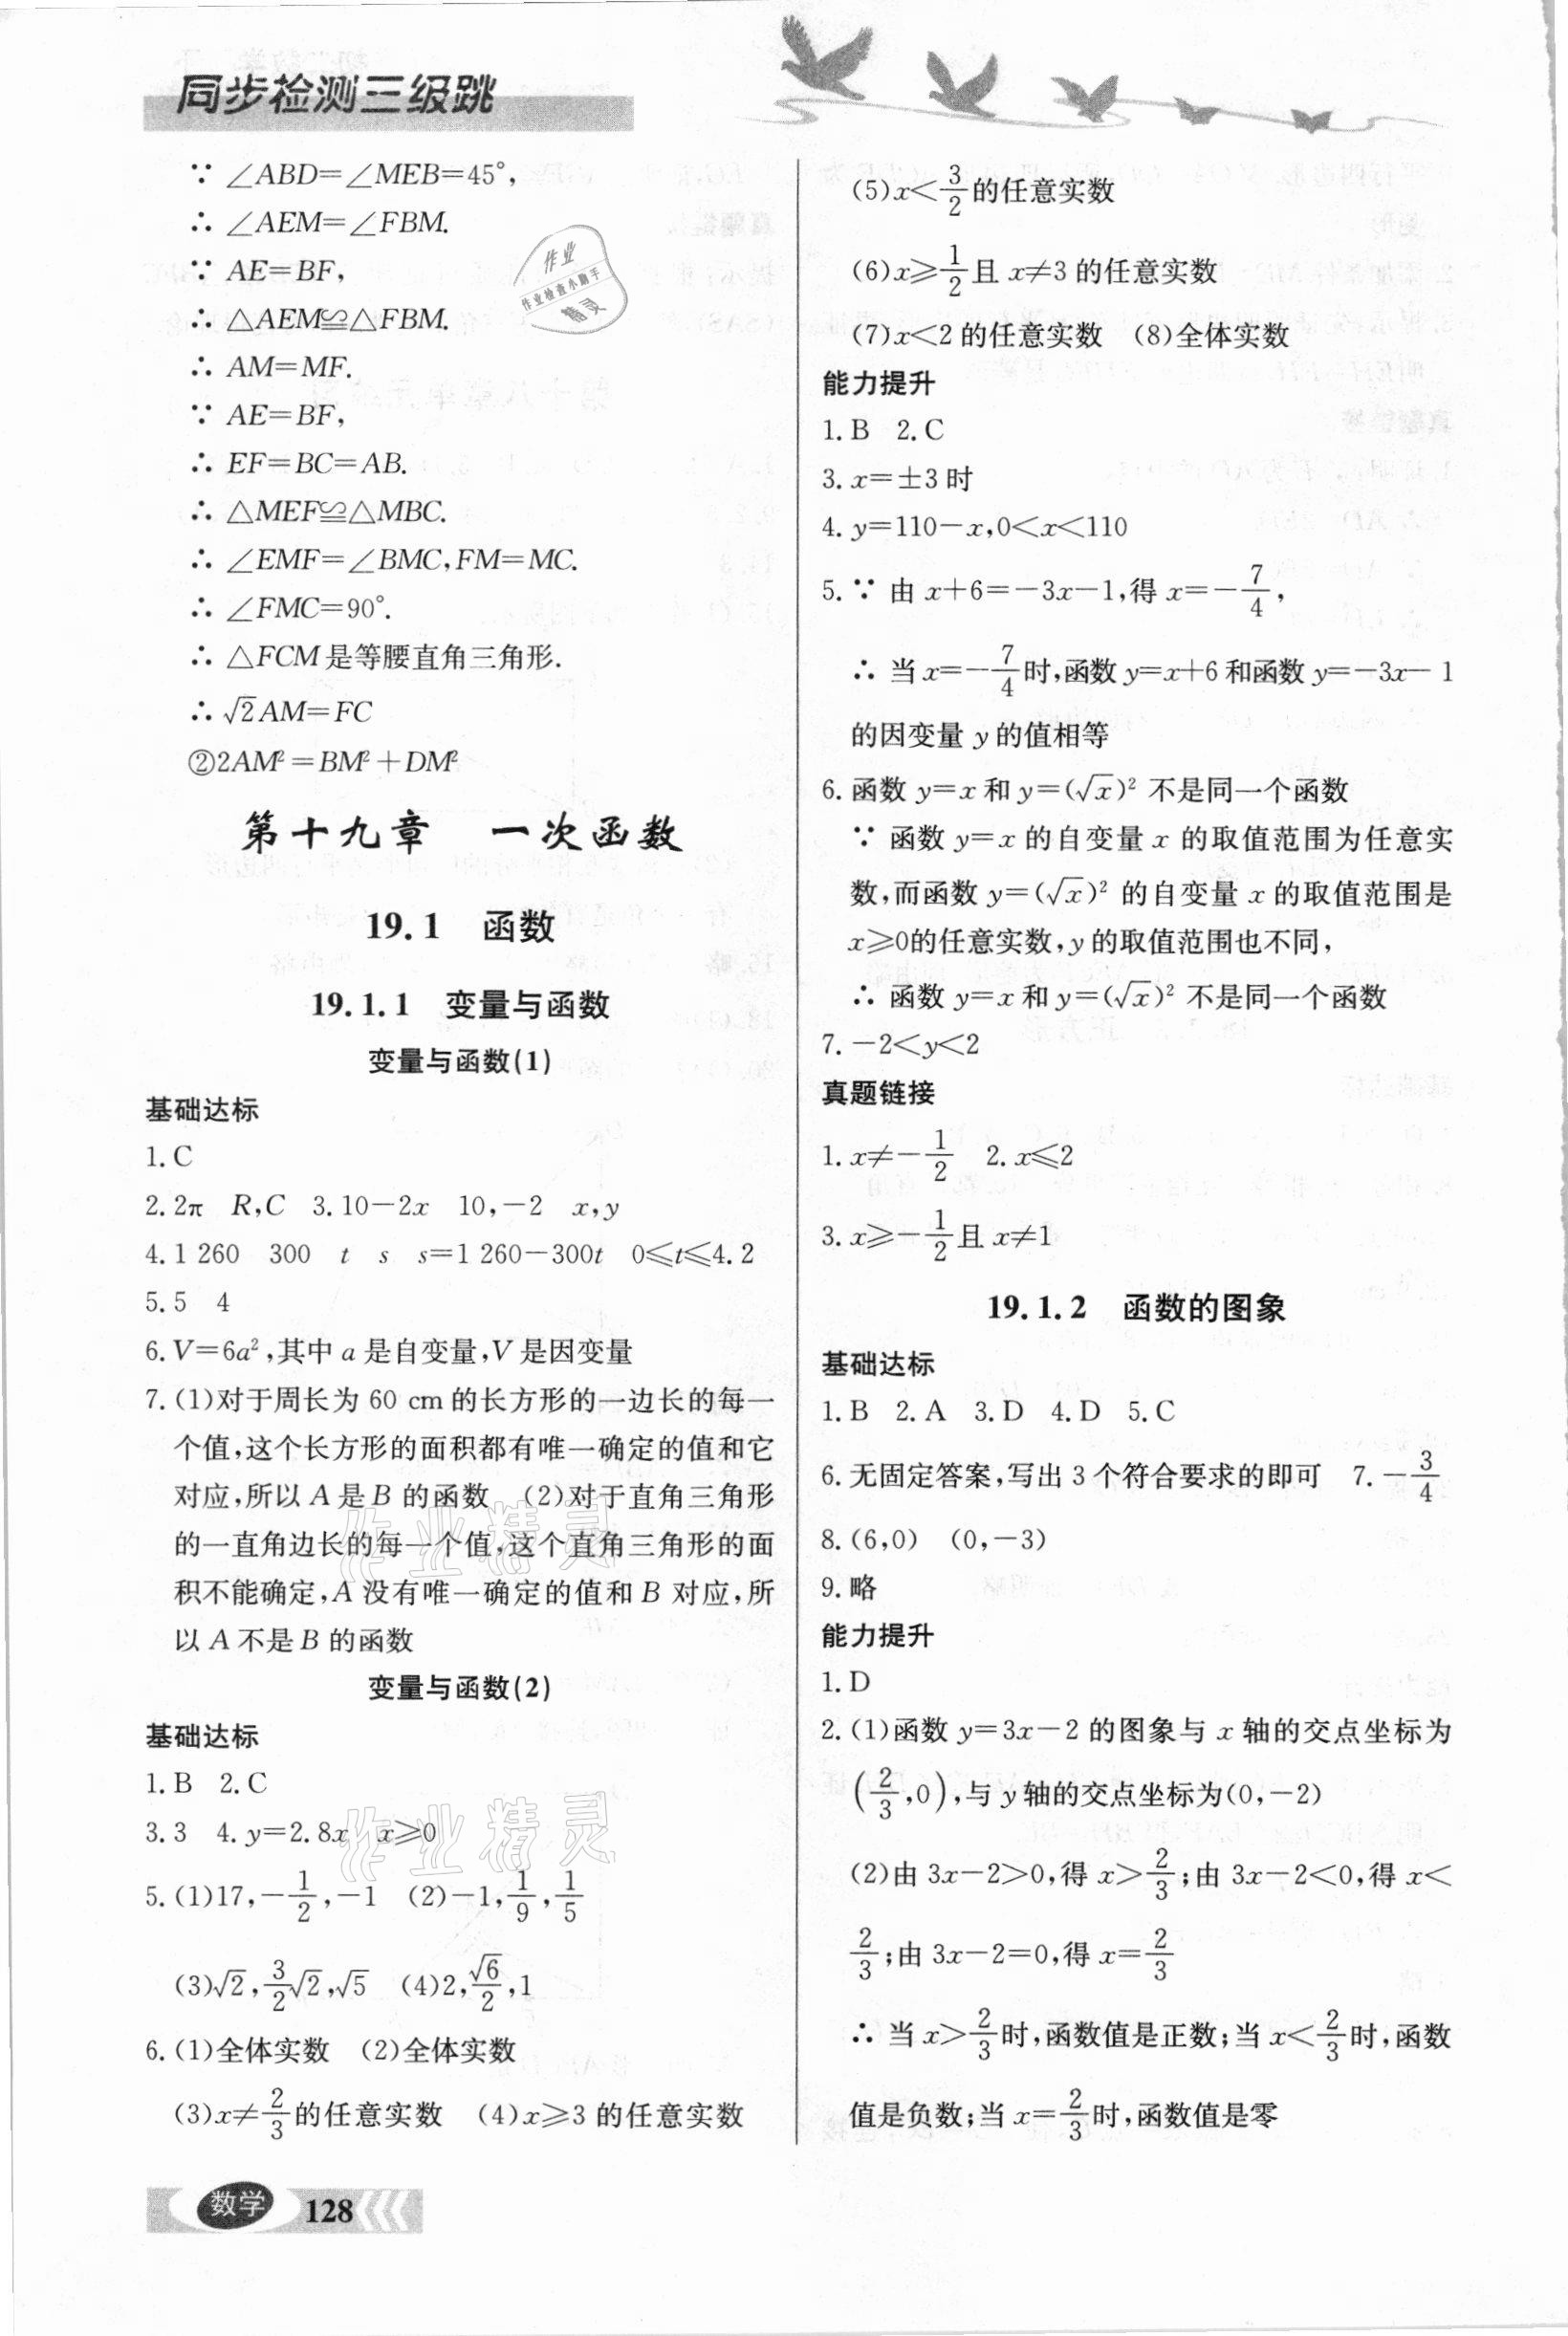 同步检测三级跳
∵ ∠ABD=∠MEB=45°,
∴ ∠AEM=∠FBM.
∵ AE=BF,
∴ △AEM≌△FBM.
∴ AM=MF.
∵ AE=BF,
∴ EF=BC=AB.
∴ △MEF≌△MBC.
∴ ∠EMF=∠BMC,FM=MC.
∴ ∠FMC=90°.
∴ △FCM是等腰直角三角形.
∴ √2AM=FC
②2AM²=BM²+DM²
第十九章 一次函数
19.1 函数
19.1.1 变量与函数
变量与函数(1)
基础达标
1.C
2.2π R,C 3.10-2x 10,-2 x,y
4.1 260 300 t s s=1 260-300t 0≤t≤4.2
5.5 4
6.V=6a²,其中a是自变量,V是因变量
7.(1)对于周长为60 cm的长方形的一边长的每一
个值,这个长方形的面积都有唯一确定的值和它
对应,所以A是B的函数 (2)对于直角三角形
的一直角边长的每一个值,这个直角三角形的面
积不能确定,A没有唯一确定的值和B对应,所
以A不是B的函数
变量与函数(2)
基础达标
1.B 2.C
3.3 4.y=2.8x x≥0
5.(1)17,-1/2,-1 (2)-1,1/9,1/5
(3)√2,3/2√2,√5 (4)2,√6/2,1
6.(1)全体实数 (2)全体实数
(3)x≠2/3的任意实数 (4)x≥3的任意实数
数学 128
(5)x<3/2的任意实数
(6)x≥1/2且x≠3的任意实数
(7)x<2的任意实数 (8)全体实数
能力提升
1.B 2.C
3.x=±3时
4.y=110-x,0<x<110
5.∵ 由x+6=-3x-1,得x=-7/4,
∴ 当x=-7/4时,函数y=x+6和函数y=-3x-1
的因变量y的值相等
6.函数y=x和y=(√x)²不是同一个函数
∵ 函数y=x的自变量x的取值范围为任意实
数,而函数y=(√x)²的自变量x的取值范围是
x≥0的任意实数,y的取值范围也不同,
∴ 函数y=x和y=(√x)²不是同一个函数
7.-2<y<2
真题链接
1.x≠-1/2 2.x≤2
3.x≥-1/2且x≠1
19.1.2 函数的图象
基础达标
1.B 2.A 3.D 4.D 5.C
6.无固定答案,写出3个符合要求的即可 7.-3/4
8.(6,0) (0,-3)
9.略
能力提升
1.D
2.(1)函数y=3x-2的图象与x轴的交点坐标为
(2/3,0),与y轴的交点坐标为(0,-2)
(2)由3x-2>0,得x>2/3;由3x-2<0,得x<
2/3;由3x-2=0,得x=2/3
∴ 当x>2/3时,函数值是正数;当x<2/3时,函数
值是负数;当x=2/3时,函数值是零
作业
作业检查小助手
精灵
作业精灵
作业精灵